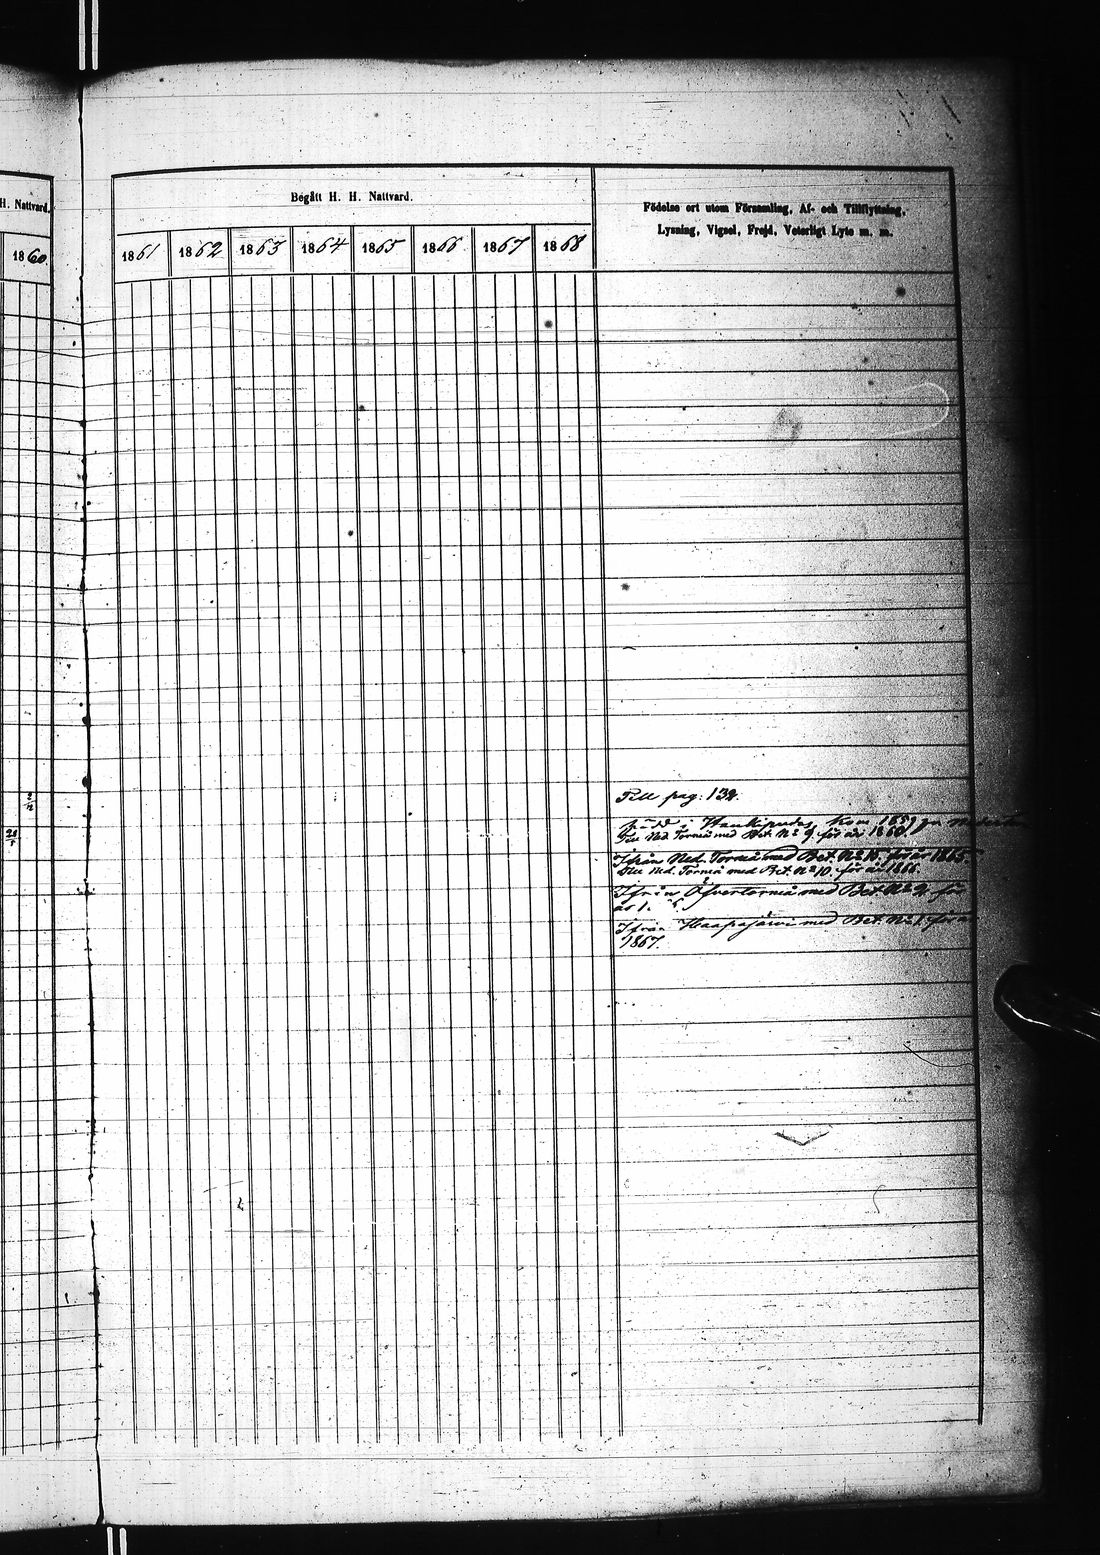 H. Nattvard.
1860
Begått H. H. Nattvard.
1861 1862 1863 1864 1865 1866 1867 1868
Födelse ort utom Församling, Af- och Tillflyttning,
Lysning, Vigsel, Frejd, Veterligt Lyte m. m.
Till pag: 132.
född i Haukipudas, kom 1859
Till Ned. Torneå med Bet. No 9 för år 1860
Ifrån Ned. Torneå med Bet. No 15 för år 1865.
Till Ned. Torneå med Bet. No 10 för år 1866.
Ifrån Öfvertorneå med Bet. No 2 för
Ifrån Haapajärvi med Bet. No 1 för
1867.